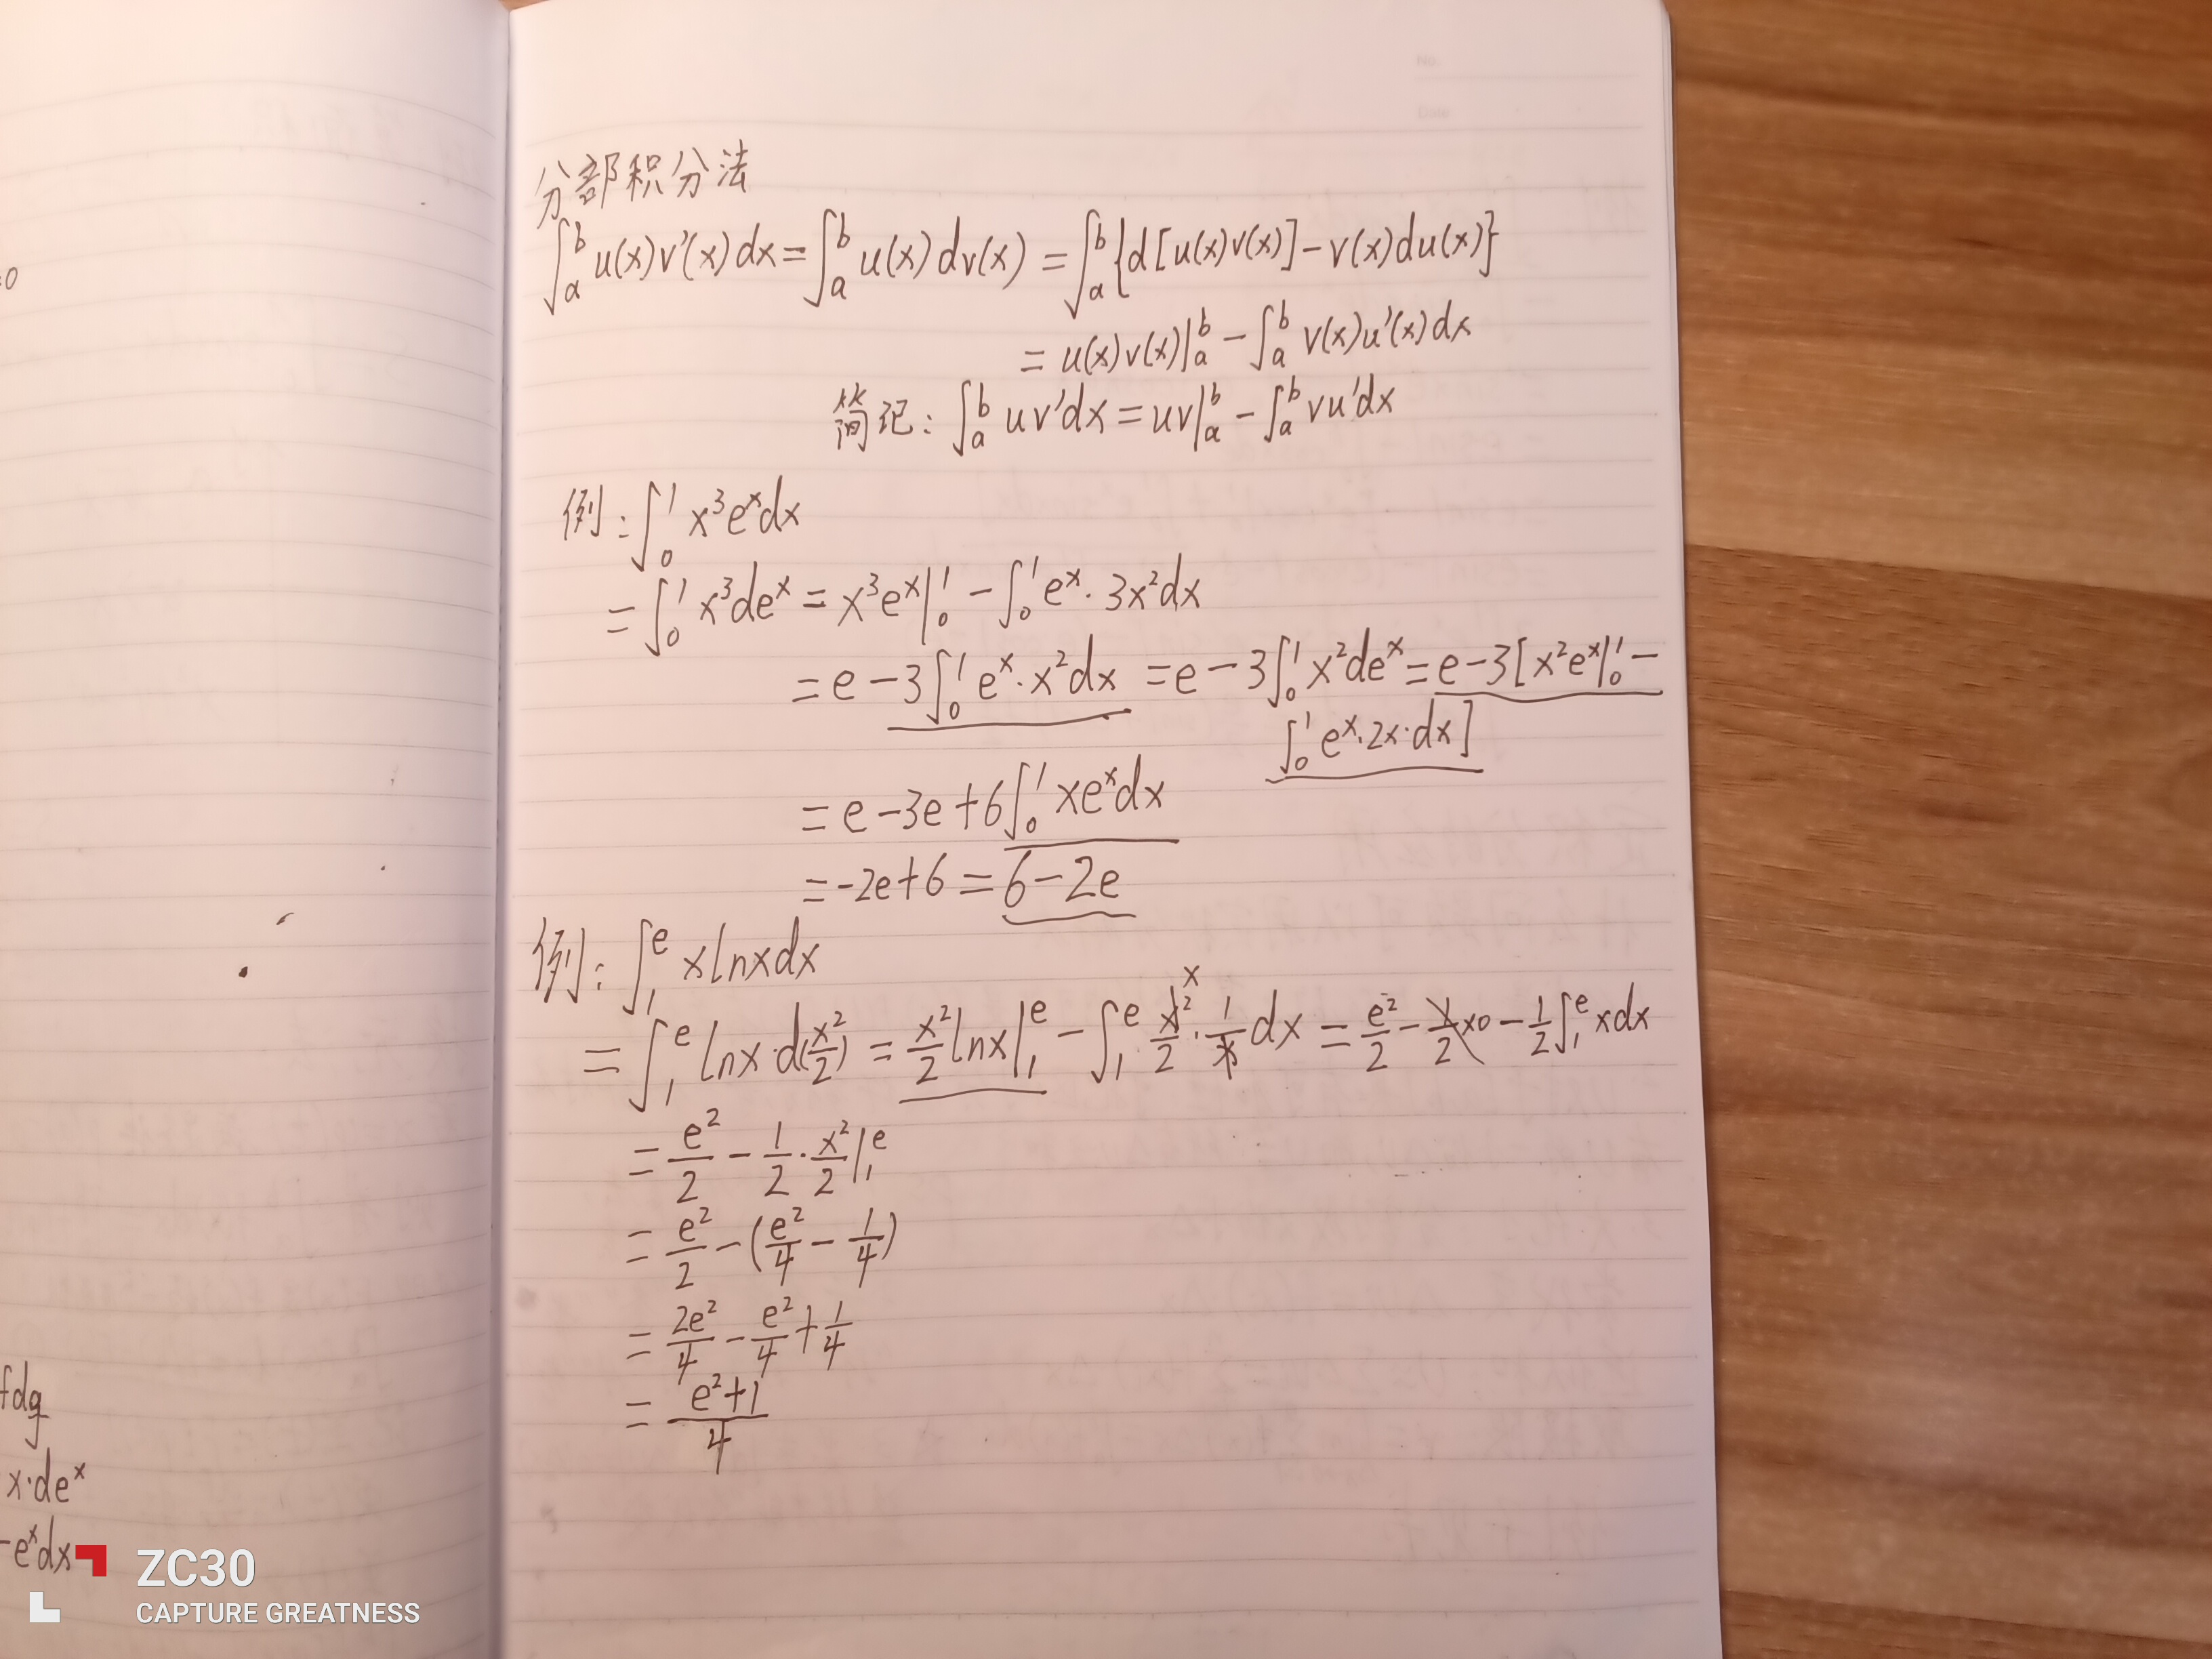 No.
Date
分部积分法
∫_a^b u(x)v'(x)dx=∫_a^b u(x)dv(x) =∫_a^b{d[u(x)v(x)]-v(x)du(x)}
= u(x)v(x)|_a^b - ∫_a^b v(x)u'(x)dx
简记: ∫_a^b uv'dx=uv|_a^b - ∫_a^b vu'dx
例:∫_0^1 x³eˣdx
=∫_0^1 x³deˣ = x³eˣ|_0^1 - ∫_0^1 eˣ·3x²dx
=e-3∫_0^1 eˣ·x²dx =e-3∫_0^1 x²deˣ=e-3[x²eˣ|_0^1-
∫_0^1 eˣ·2x·dx]
=e-3e+6∫_0^1 xeˣdx
=-2e+6=6-2e
例:∫_1^e xlnxdx
x
=∫_1^e lnx·d(x²/2) = x²/2 lnx|_1^e - ∫_1^e x²/2·1/x dx = e²/2 - 1/2×0 - 1/2∫_1^e xdx
= e²/2 - 1/2·x²/2|_1^e
= e²/2 - (e²/4 - 1/4)
= 2e²/4 - e²/4 + 1/4
= (e²+1)/4
=0
fdg
x·deˣ
-eˣdx
ZC30
CAPTURE GREATNESS